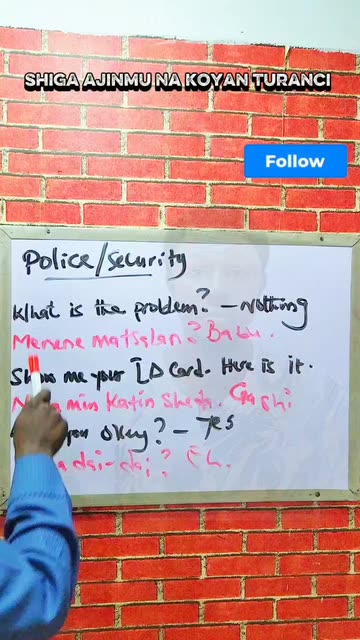 SHIGA AJINMU NA KOYAN TURANCI
Follow
Police/security
What is the problem? - Nothing
Menene matsalan? Babu.
Show me your ID Card. Here is it.
min Katin Sheda. Gashi
you Okay? - Yes
dai-dai? Eh.